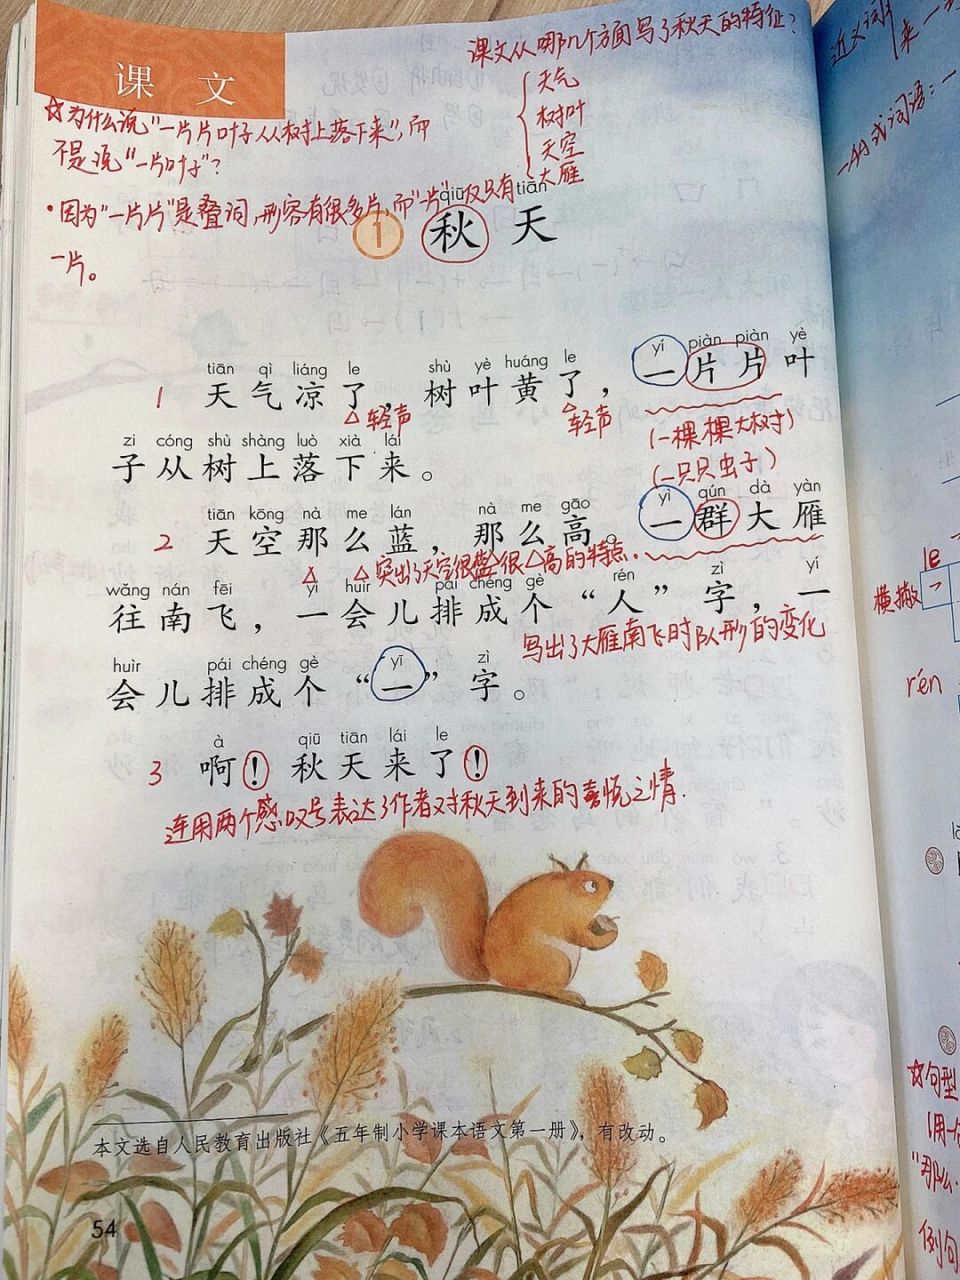 课文
课文从哪几个方面写了秋天的特征?
天气
树叶
天空
大雁
☆为什么说"一片片叶子从树上落下来",而
不是说"一片叶子"?
·因为"一片片"是叠词,形容有很多片,而"一片"仅只有
一片。
qiū tiān
1 秋天
tiān qì liáng le shù yè huáng le yí piàn piàn yè
1 天气凉了,树叶黄了,一片片叶
△轻声 △轻声
(一棵棵大树)
(一只只虫子)
zi cóng shù shàng luò xià lái
子从树上落下来。
tiān kōng nà me lán nà me gāo yì qún dà yàn
2 天空那么蓝,那么高。一群大雁
突出了天空很蓝很高的特点.
wǎng nán fēi yí huìr pái chéng gè rén zì yí
往南飞,一会儿排成个“人”字,一
写出了大雁南飞时队形的变化
huìr pái chéng gè yī zì
会儿排成个“一”字。
à qiū tiān lái le
3 啊!秋天来了!
连用两个感叹号表达了作者对秋天到来的喜悦之情.
本文选自人民教育出版社《五年制小学课本语文第一册》,有改动。
54
近义词
来
le
横撇
rén
☆句型
"那么
例句